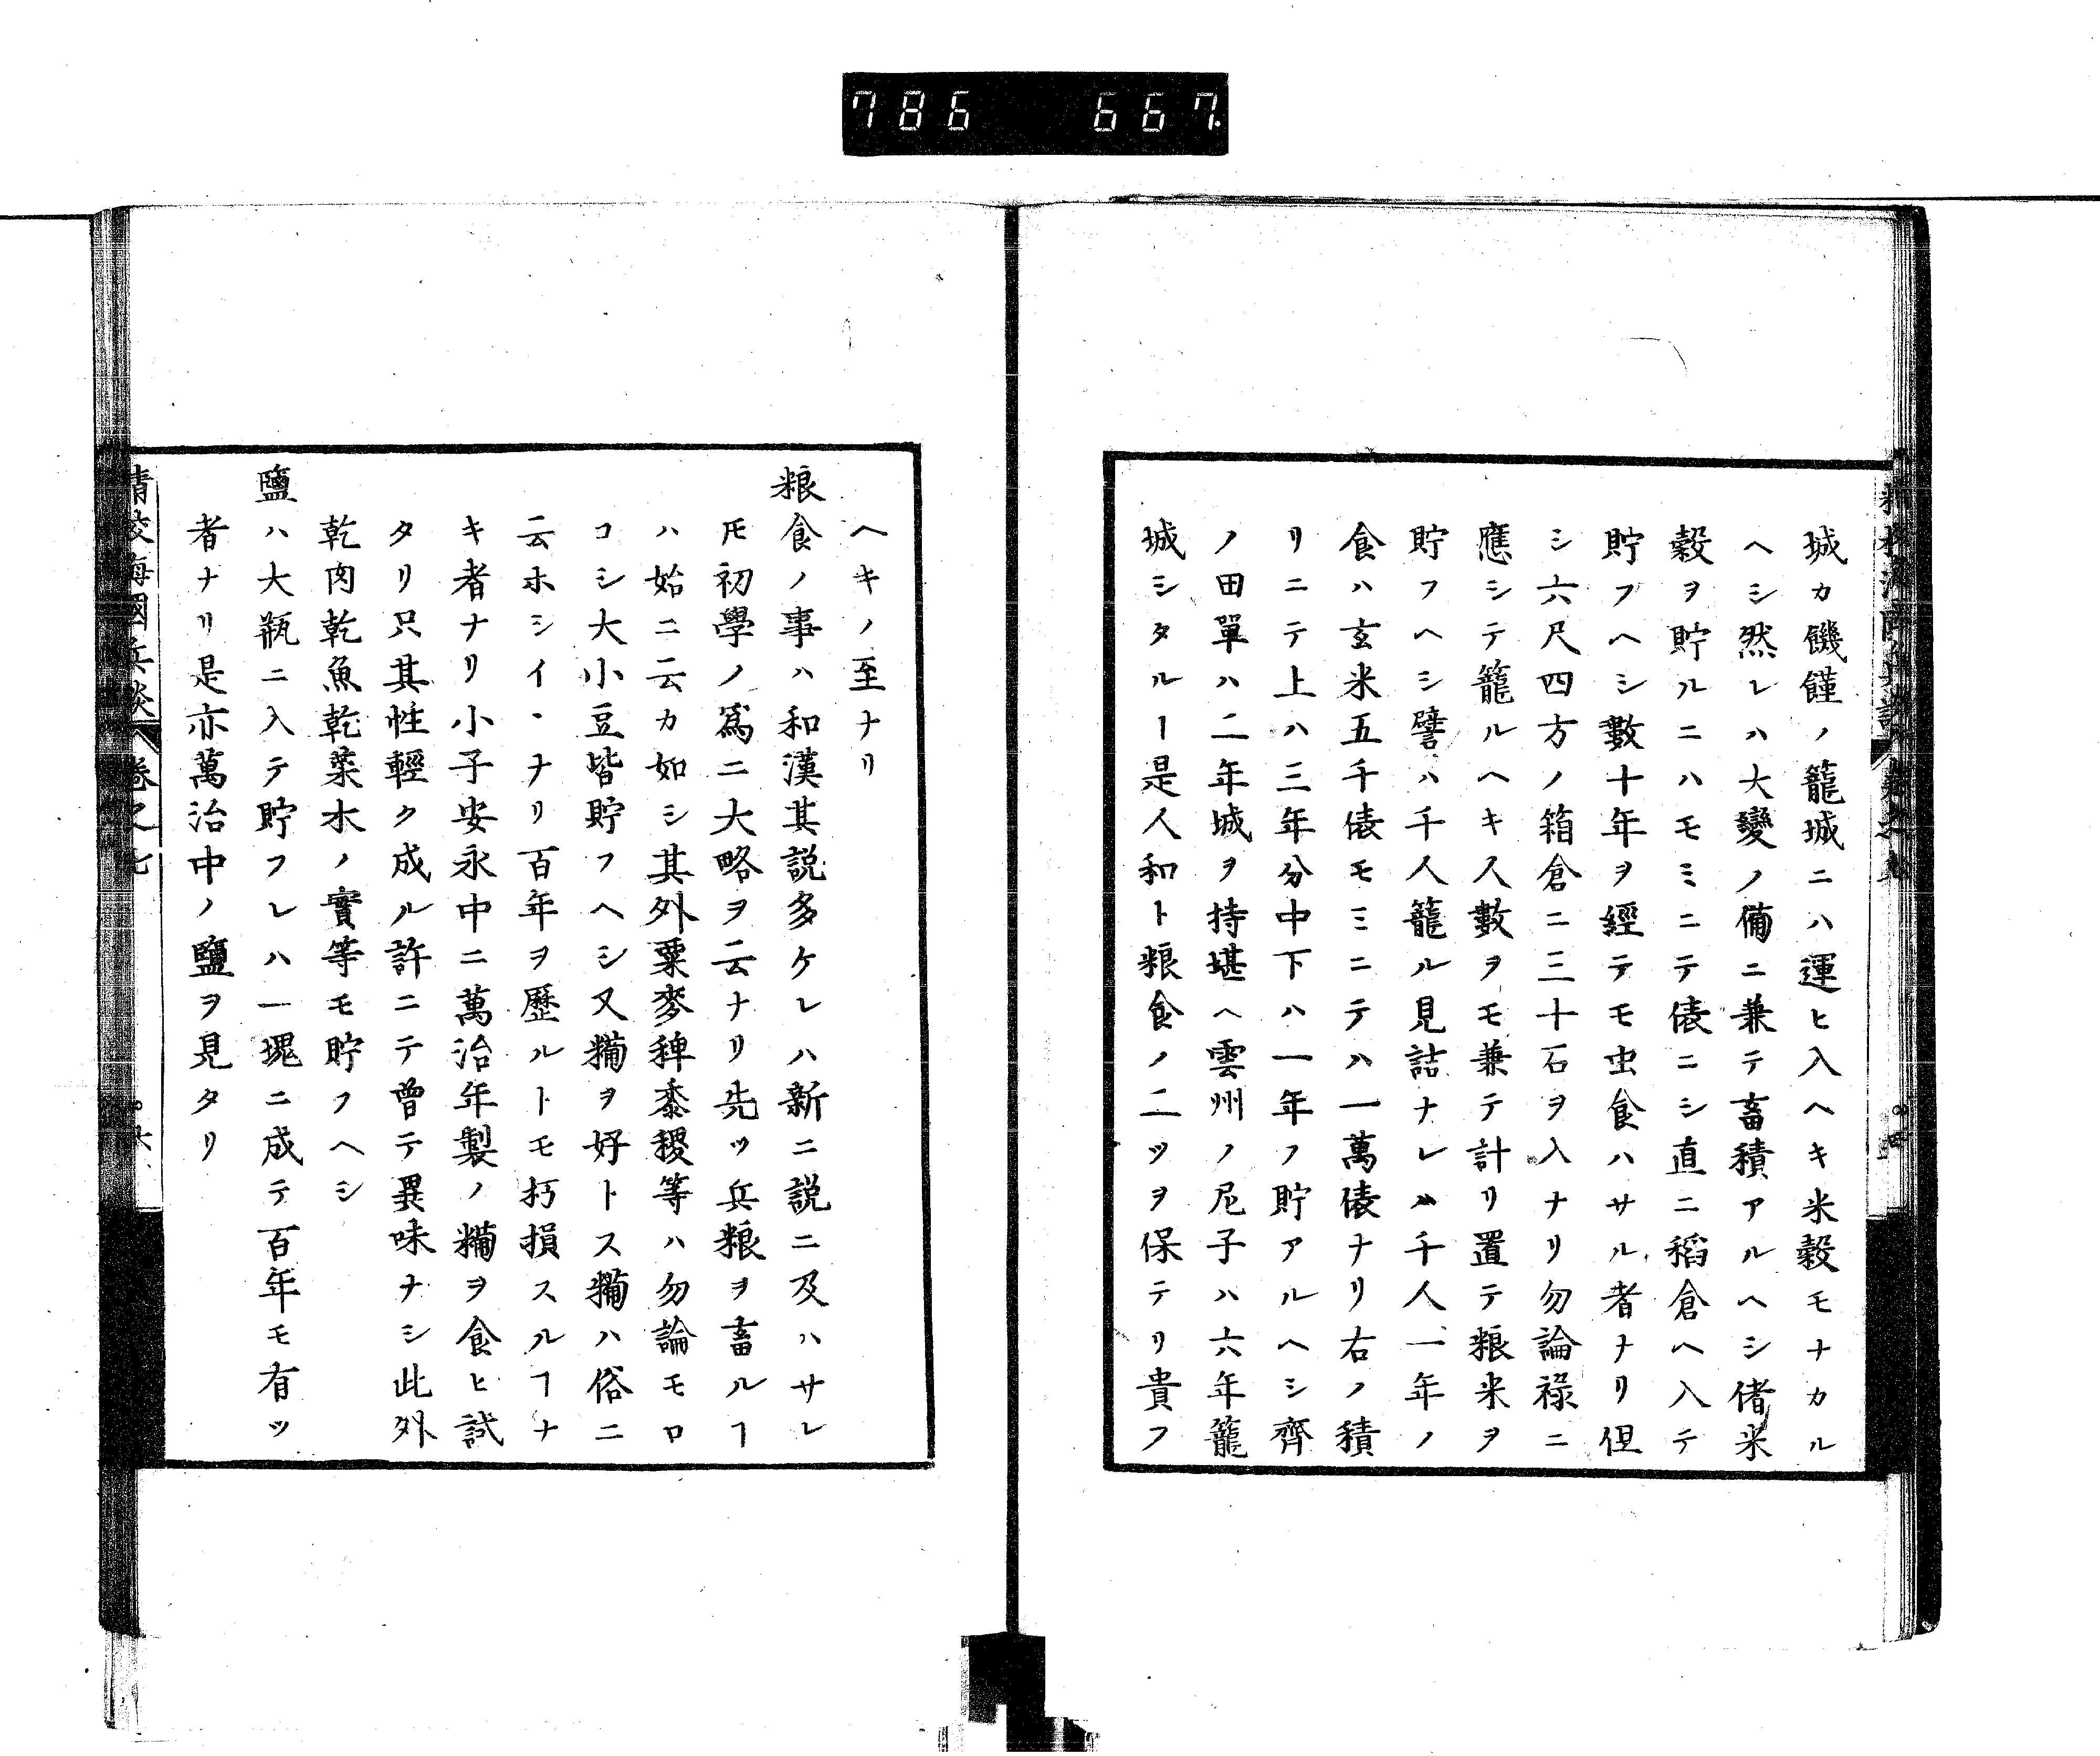 786 667
城カ饑饉ノ籠城ニハ運ヒ入ヘキ米穀モナカル
ヘシ然レハ大變ノ備ニ兼テ畜積アルヘシ偖米
穀ヲ貯ルニハモミニテ俵ニシ直ニ稻倉ヘ入テ
貯フヘシ數十年ヲ經テモ虫食ハサル者ナリ但
シ六尺四方ノ箱倉ニ三十石ヲ入ナリ勿論祿ニ
應シテ籠ルヘキ人數ヲモ兼テ計リ置テ粮米ヲ
貯フヘシ譬ハ千人籠ル見詰ナレハ千人一年ノ
食ハ玄米五千俵モミニテハ一萬俵ナリ右ノ積
リニテ上ハ三年分中下ハ一年ノ貯アルヘシ齊
ノ田單ハ二年城ヲ持堪ヘ雲州ノ尼子ハ六年籠
城シタルー是人和ト粮食ノ二ツヲ保テリ貴フ
ヘキノ至ナリ
粮食ノ事ハ和漢其説多ケレハ新ニ説ニ及ハサレ
𪜈初學ノ爲ニ大略ヲ云ナリ先ツ兵粮ヲ畜ルヿ
ハ始ニ云カ如シ其外粟麥稗黍稷等ハ勿論モロ
コシ大小豆皆貯フヘシ又糒ヲ好トス糒ハ俗ニ
云ホシイヽナリ百年ヲ歷ルトモ朽損スルヿナ
キ者ナリ小子安永中ニ萬治年製ノ糒ヲ食ヒ試
タリ只其性輕ク成ル許ニテ曾テ異味ナシ此外
乾肉乾魚乾菜木ノ實等モ貯フヘシ
鹽ハ大瓶ニ入テ貯フレハ一塊ニ成テ百年モ有ツ
者ナリ是亦萬治中ノ鹽ヲ見タリ
精校海國兵談 卷之七 六